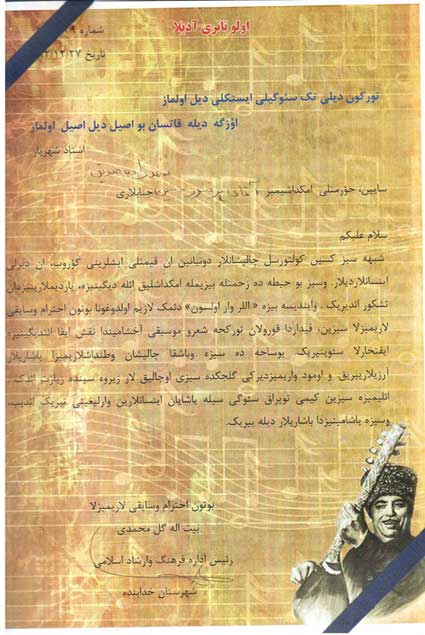 اولو تانری آدیلا
شماره
تاریخ
تورکون دیلی تک سئوگیلی ایستکلی دیل اولماز
اؤزگه دیله قاتسان بو اصیل دیل اصیل اولماز
استاد شهریار
سایین، حؤرمتلی امکداشیمیز جنابلاری
سلام علیکم
شبهه سیز کسین کولتورسل چالیشانلار دونیانین ان قیمتلی ایشلرینی گؤروب، ان دیرلی
اینسانلاردیلار. وسیز بو حیطه ده زحمتله بیزیمله امکداشلیق ائله دیگینیزه، یاردیملارینیزدان
تشکور ائدیریک. وایندیسه بیزه «اللر وار اولسون» دئمک لازیم اولدوغونا بوتون احترام وسایقی
لاریمیزلا سیزین، قیداردا قورولان تورکجه شعرو موسیقی آخشامیندا نقش ایفا ائتدیگینیزه
ایفتخارلا سئوینیریک. بوساحه ده سیزه وباشقا چالیشان وطنداشلاریمیزا باشاریلار
آرزیلاریریق. و اومود واریمیزدیرکی گلجکده سیزی اوجالیق لار زیروه سینده زیارت ائدک.
ائلیمیزه سیزین کیمی توپراق سئوگی سیله یاشایان اینسانلارین وارلیغینی تبریک ائدیب،
وسیزه یاشامینیزدا باشاریلار دیله ییریک.
بوتون احترام وسایقی لاریمیزلا
بیت اله گل محمدی
رئیس اداره فرهنگ وارشاد اسلامی
شهرستان خدابنده